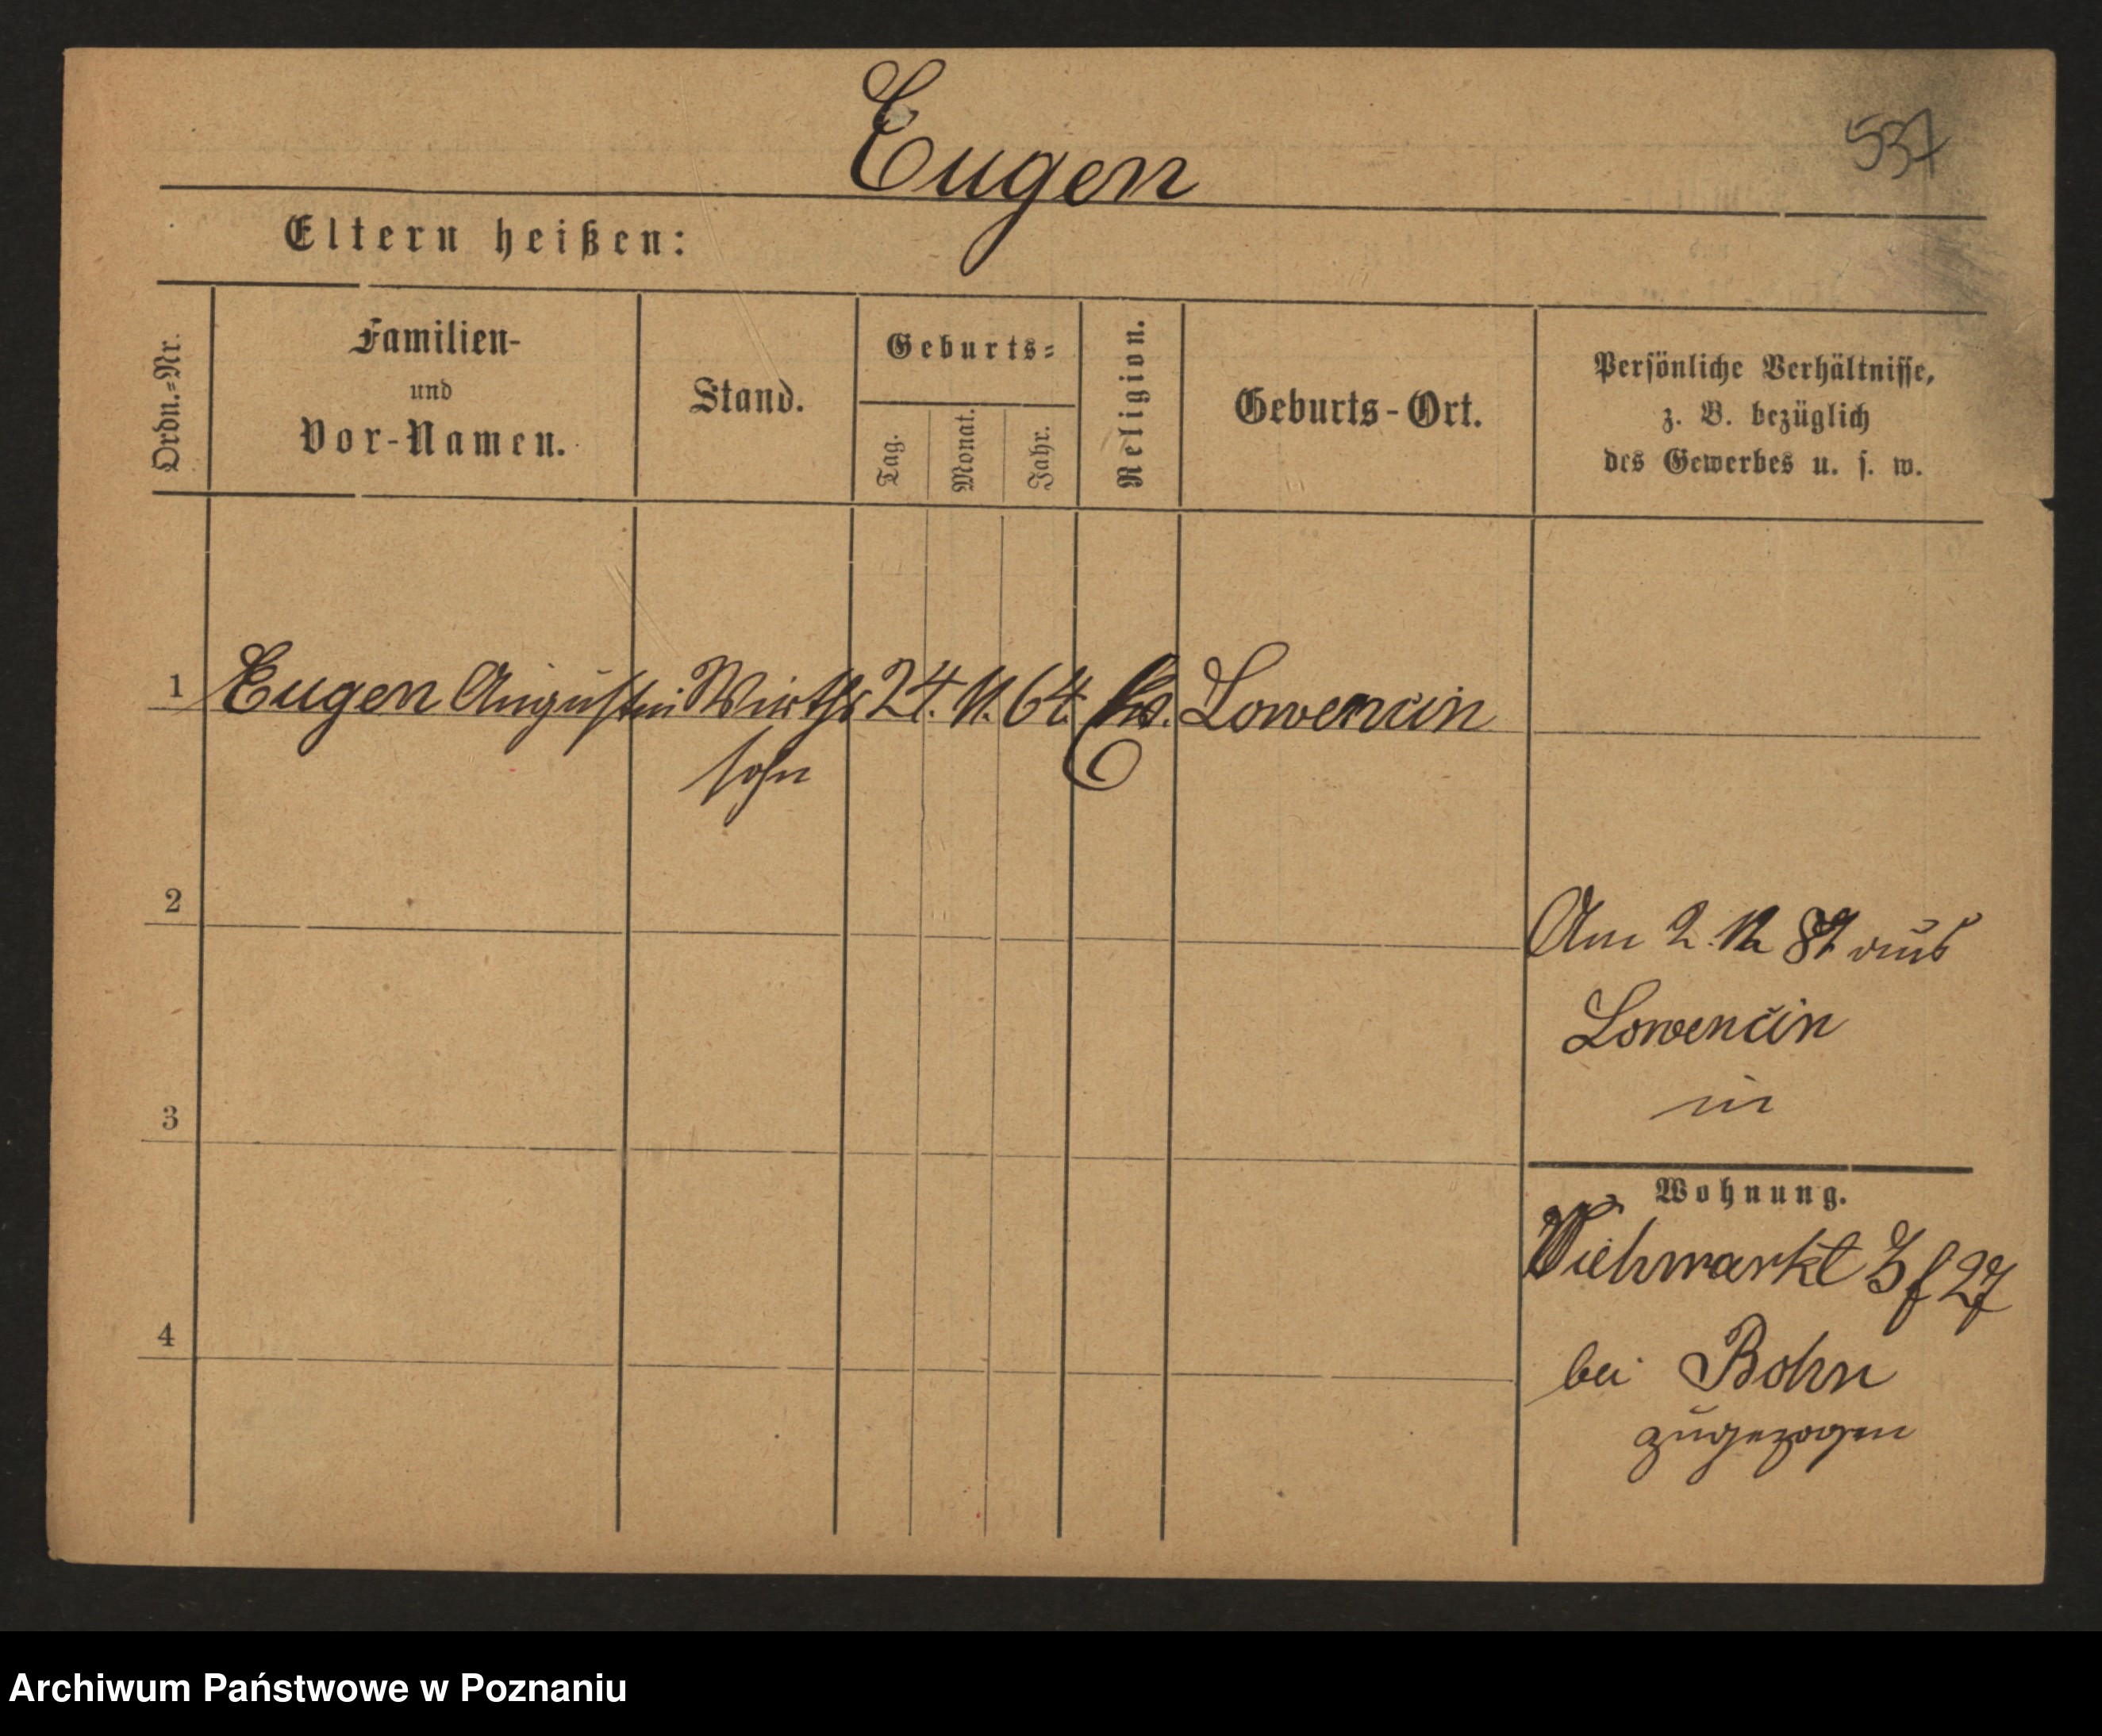 Eugen
537
Eltern heißen:
Ordn.=Nr.
Familien-
und
Vor-Namen.
Stand.
Geburts=
Tag.
Monat.
Jahr.
Religion.
Geburts-Ort.
Persönliche Verhältnisse,
z. B. bezüglich
des Gewerbes u. s. w.
1 Eugen Augustin Wirths 24. 11. 64. Lowencin
sohn
2
Am 2. 12 87 aus
Lowencin
in
3
Wohnung.
Viehmarkt 27
4
bei Bohn
zugezogen
Archiwum Państwowe w Poznaniu